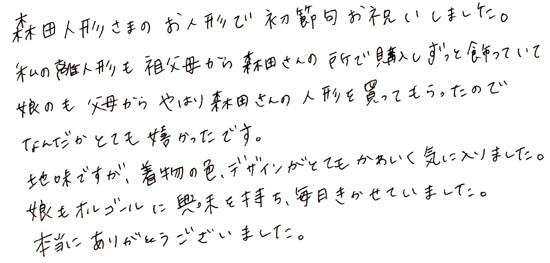 森田人形さまの お人形で 初節句 お祝いしました。
私の雛人形も 祖父母から 森田さんの 所で購入しずっと飾っていて
娘のも 父母から やはり森田さんの 人形を買ってもらったので
なんだかとても嬉かったです。
地味ですが、着物の色、デザインがとてもかわいく気に入りました。
娘もオルゴールに興味を持ち、毎日きかせていました。
本当にありがとうございました。